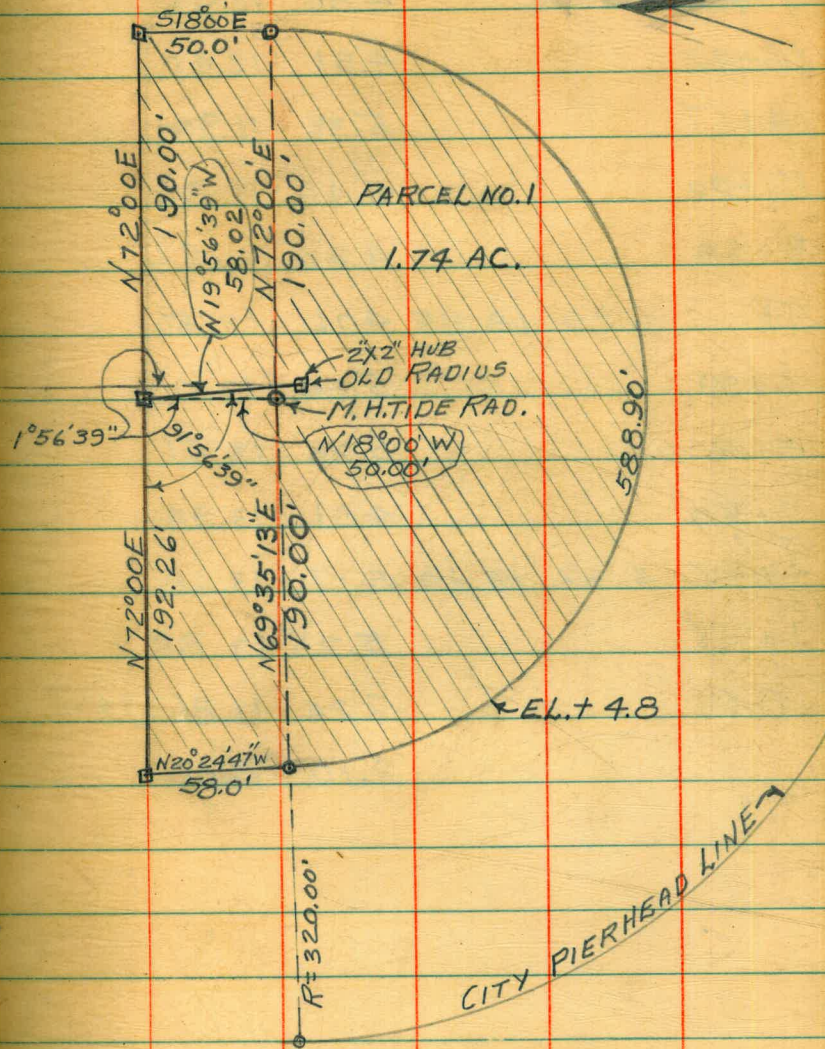 S18°00'E
50.0'
N72°00E
190.00'
N19°56'39"W
58.02
N72°00'E
190.00'
PARCEL NO.1
1.74 AC.
2"X2" HUB
OLD RADIUS
M.H.TIDE RAD.
N18°00'W
50.00'
1°56'39"
91°56'39"
588.90'
N72°00E
192.26'
N69°35'13"E
190.00'
EL.+ 4.8
N20°24'47"W
58.0'
R=320.00'
CITY PIERHEAD LINE